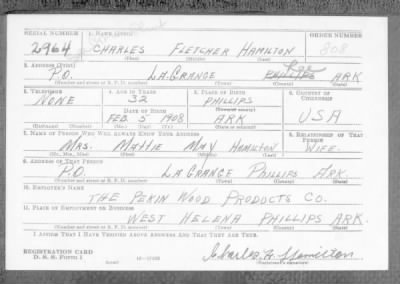 SERIAL NUMBER 1. NAME (Print) ORDER NUMBER
2964 CHARLES FLETCHER HAMILTON 808
(First) (Middle) (Last)
2. ADDRESS (Print)
P.O. LAGRANGE PHILLIPS Lee ARK
(Number and street or R. F. D. number) (Town) (County) (State)
3. TELEPHONE 4. AGE IN YEARS 5. PLACE OF BIRTH 6. COUNTRY OF CITIZENSHIP
NONE 32 PHILLIPS
DATE OF BIRTH (Town or county)
FEB 5 1908 ARK USA
(Exchange) (Number) (Mo.) (Day) (Yr.) (State or country)
7. NAME OF PERSON WHO WILL ALWAYS KNOW YOUR ADDRESS 8. RELATIONSHIP OF THAT PERSON
MRS. MATTIE MAY HAMILTON WIFE
(Mr., Mrs., Miss) (First) (Middle) (Last)
9. ADDRESS OF THAT PERSON
P.O. LAGRANGE PHILLIPS ARK.
(Number and street or R. F. D. number) (Town) (County) (State)
10. EMPLOYER'S NAME
THE PEKIN WOOD PRODUCTS CO.
11. PLACE OF EMPLOYMENT OR BUSINESS
WEST HELENA PHILLIPS ARK.
(Number and street or R. F. D. number) (Town) (County) (State)
I AFFIRM THAT I HAVE VERIFIED ABOVE ANSWERS AND THAT THEY ARE TRUE.
REGISTRATION CARD
D. S. S. Form 1 Charles F. Hamilton
(Registrant's signature)